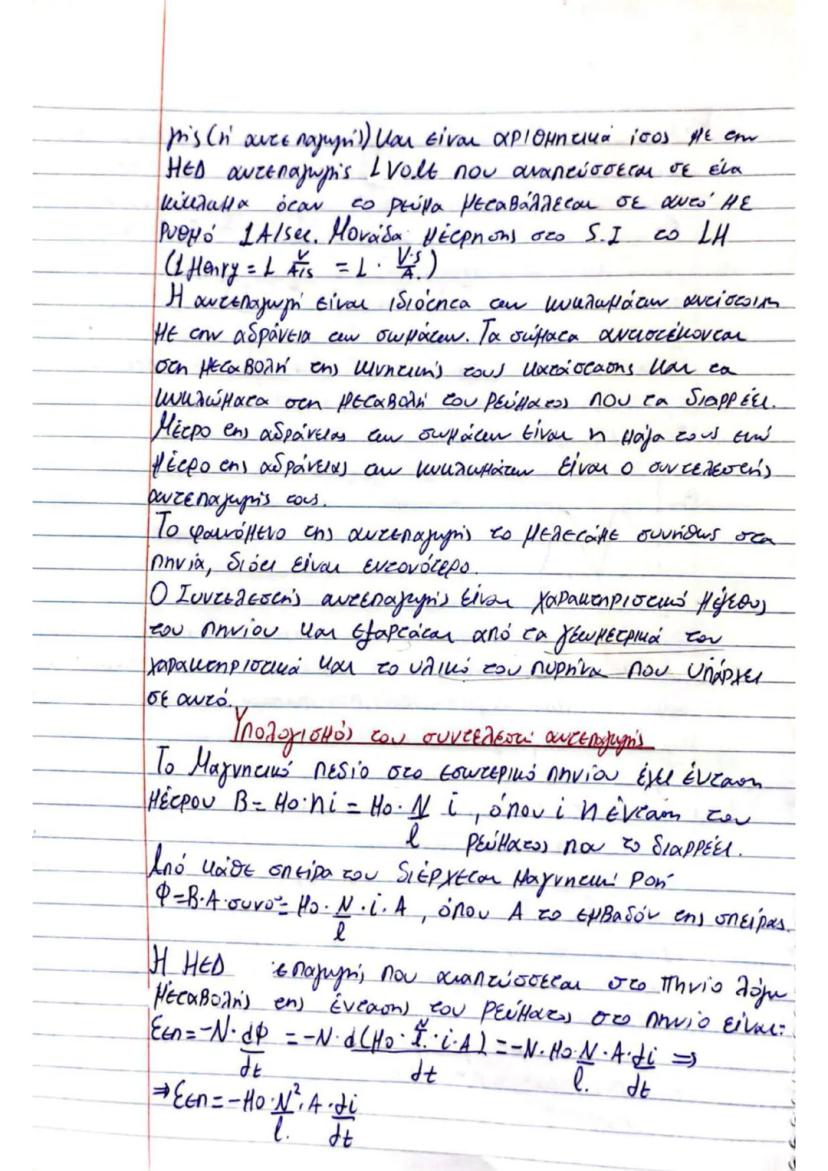 γής (ή αυτεπαγωγή)) και είναι αριθμητικά ίσος με την
ΗΕΔ αυτεπαγωγής 1 Volt που αναπτύσσεται σε ένα
κύκλωμα όταν το ρεύμα μεταβάλλεται σε αυτό με
ρυθμό 1A/sec. Μονάδα μέτρησης στο S.I το 1H
(1 Henry = 1 V/A/s = 1 · V·s/A.)
Η αυτεπαγωγή είναι ιδιότητα των κυκλωμάτων αντίστοιχη
με την αδράνεια των σωμάτων. Τα σώματα αντιστέκονται
στη μεταβολή της κινητικής τους κατάστασης και τα
κυκλώματα στη μεταβολή του ρεύματος που τα διαρρέει.
Μέτρο της αδράνειας των σωμάτων είναι η μάζα τους ενώ
μέτρο της αδράνειας των κυκλωμάτων είναι ο συντελεστής
αυτεπαγωγής τους.
Το φαινόμενο της αυτεπαγωγής το μελετάμε συνήθως στα
πηνία, διότι είναι εντονότερο.
Ο Συντελεστής αυτεπαγωγής είναι χαρακτηριστικό μέγεθος
του πηνίου και εξαρτάται από τα γεωμετρικά του
χαρακτηριστικά και το υλικό του πυρήνα που υπάρχει
σε αυτό.
Υπολογισμός του συντελεστή αυτεπαγωγής
Το Μαγνητικό πεδίο στο εσωτερικό πηνίου έχει ένταση
μέτρου B = μο·ni = μο · N/l i, όπου i η ένταση του
ρεύματος που το διαρρέει.
Από κάθε σπείρα του διέρχεται μαγνητική ροή
Φ=B·A·συν0= μο · N/l · i · A, όπου A το εμβαδόν της σπείρας.
Η ΗΕΔ επαγωγής που αναπτύσσεται στο πηνίο λόγω
μεταβολής της έντασης του ρεύματος στο πηνίο είναι:
Εεπ=-N· dφ/dt = -N · d(μο · N/l · i·A)/dt = -N·μο N/l. · A · di/dt ⇒
⇒ Εεπ = -μο · N²/l. · A · di/dt